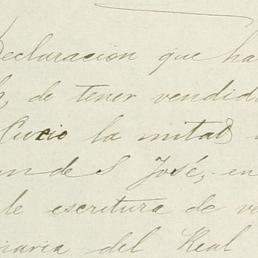 Declaracion que ha
de tener vendid
Lucio la mitad
de S. José, en
de escritura de v
del Real